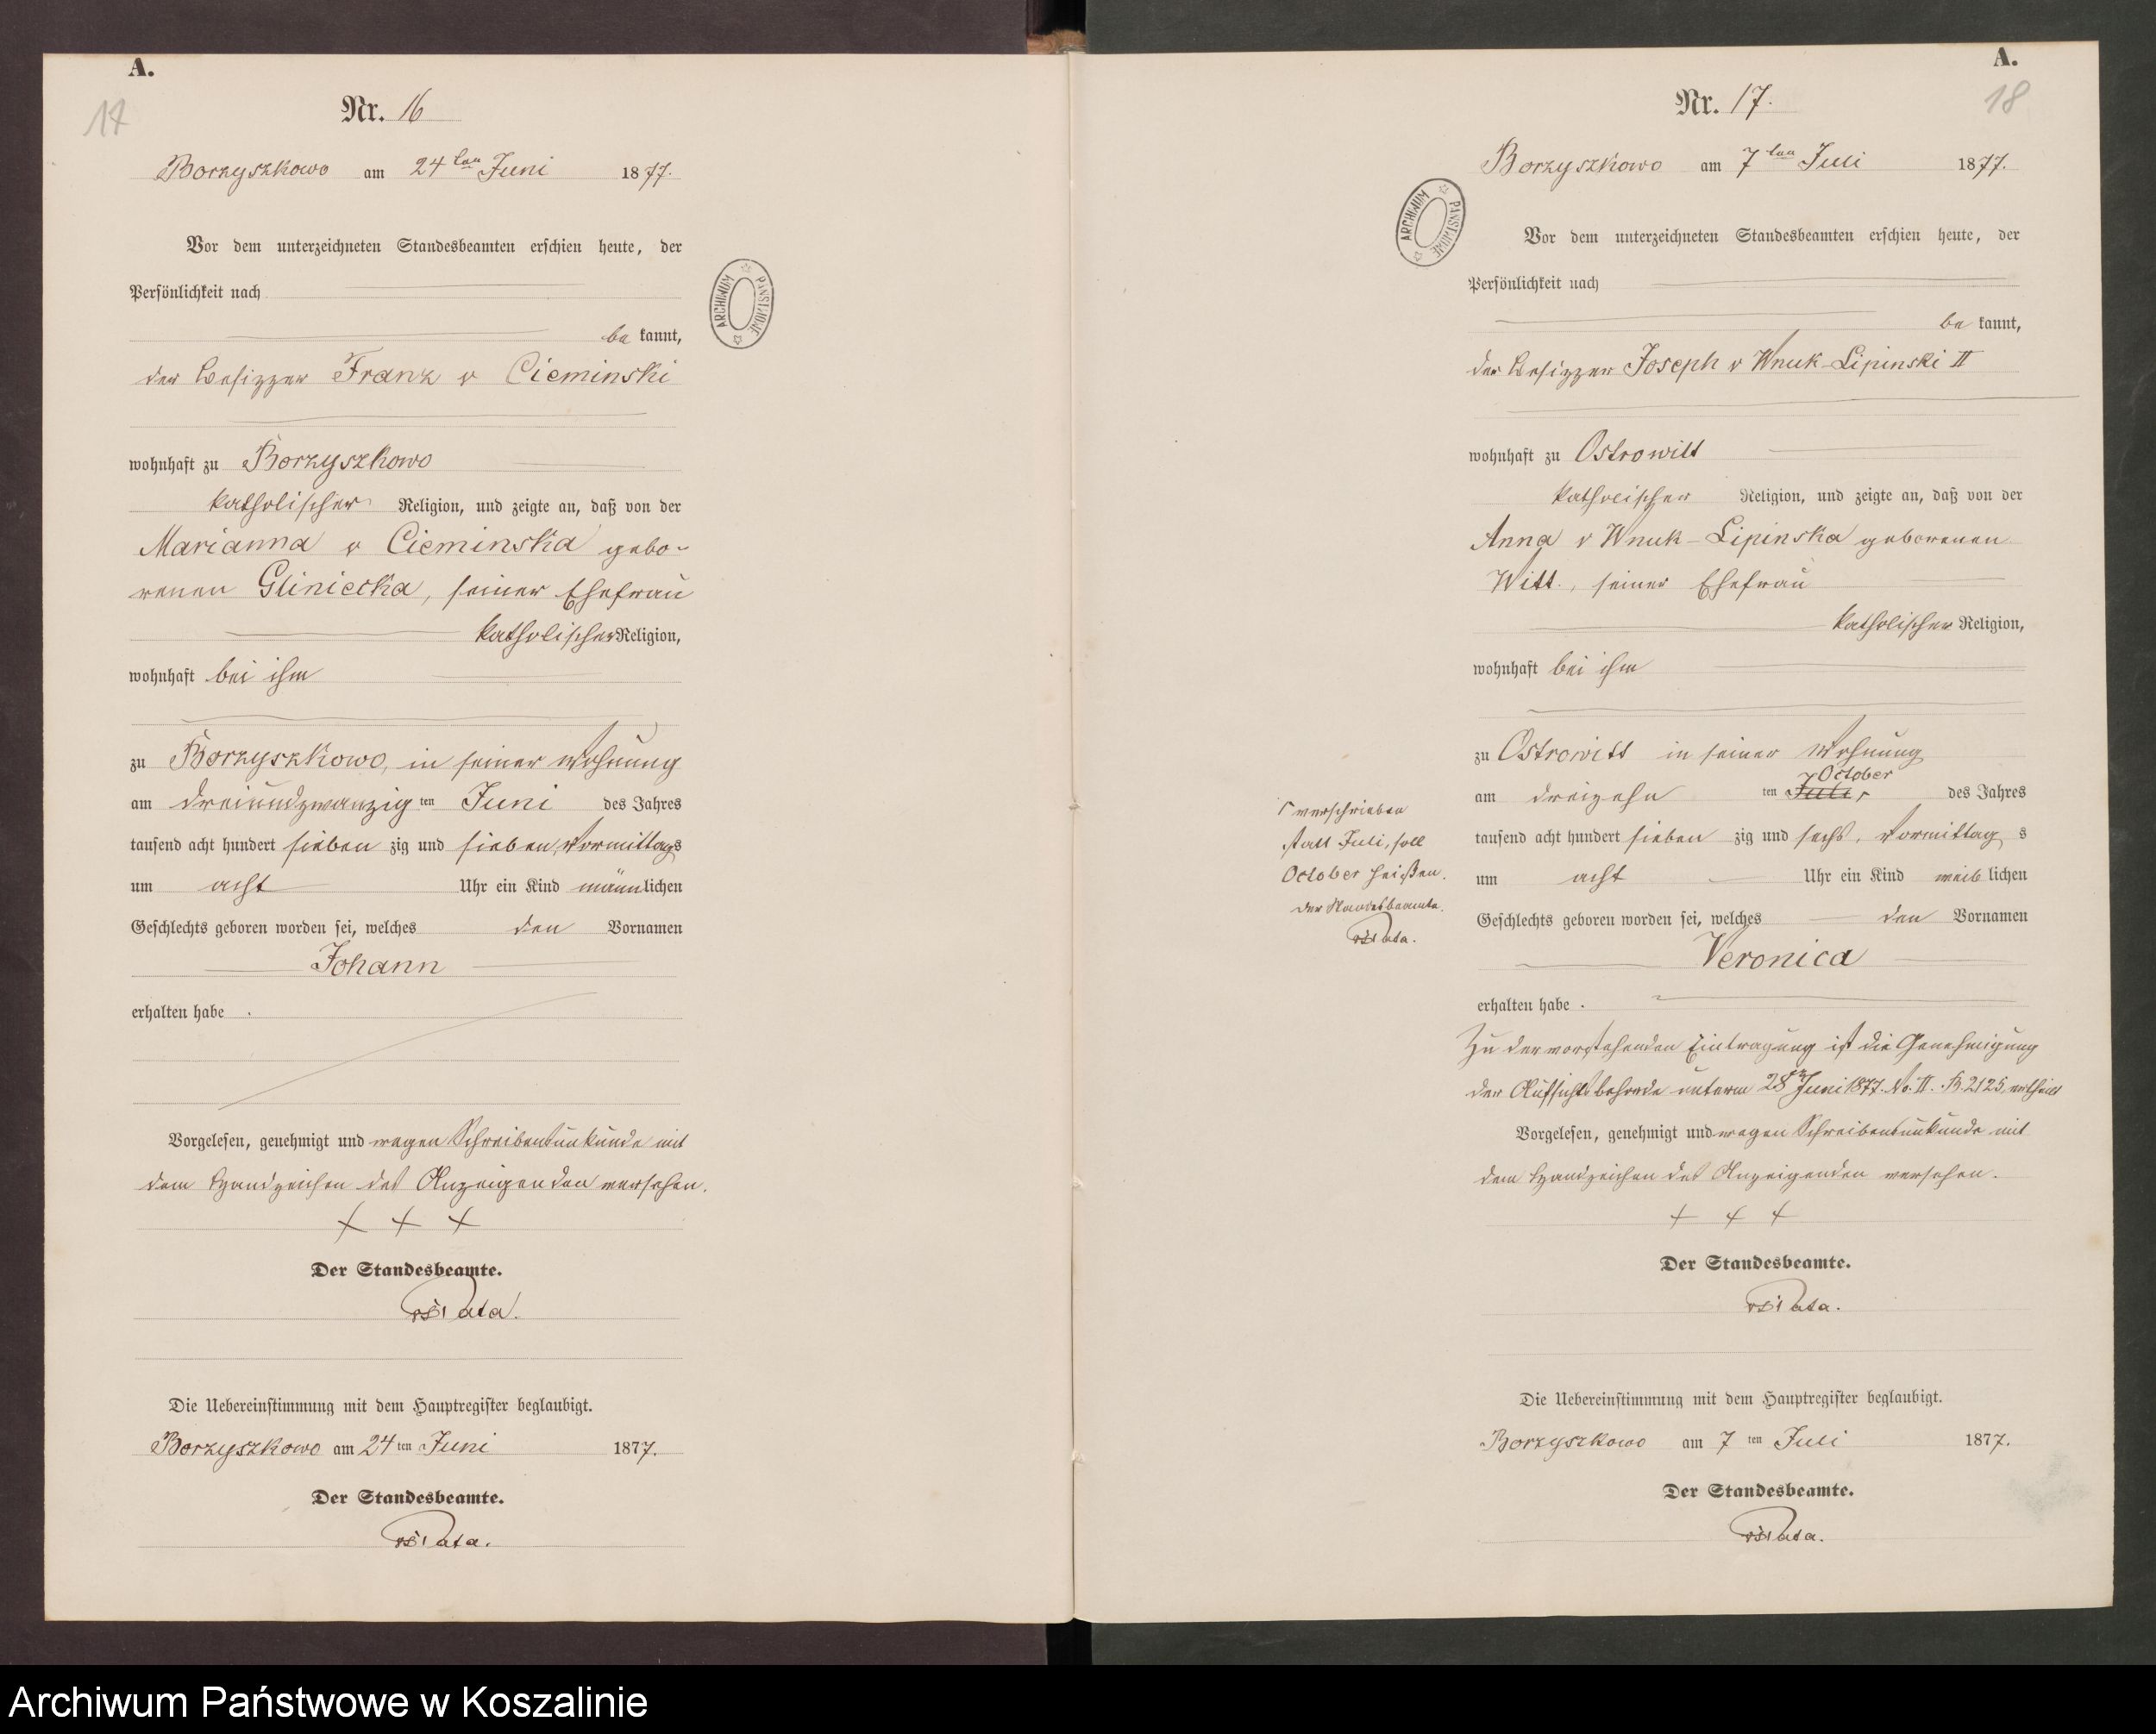 A.
17
Nr. 16
Borzyszkowo am 24ten Juni 1877.
Vor dem unterzeichneten Standesbeamten erschien heute, der
Persönlichkeit nach
be kannt,
der Besizzer Franz v Cieminski
wohnhaft zu Borzyszkowo
katholischer Religion, und zeigte an, daß von der
Marianna v Cieminska gebo-
renen Gliniecka, seiner Ehefrau
katholischer Religion,
wohnhaft bei ihm
zu Borzyszkowo, in seiner Wohnung
am dreiundzwanzig ten Juni des Jahres
tausend acht hundert sieben zig und sieben, Vormittags
um acht Uhr ein Kind männlichen
Geschlechts geboren worden sei, welches den Vornamen
Johann
erhalten habe.
Vorgelesen, genehmigt und wegen Schreibensunkunde mit
dem Handzeichen des Anzeigenden versehen.
+ + +
Der Standesbeamte.
Die Uebereinstimmung mit dem Hauptregister beglaubigt.
Borzyszkowo am 24 ten Juni 1877.
Der Standesbeamte.
ARCHIWUM PAŃSTWOWE
A.
18
Nr. 17.
Borzyszkowo am 7ten Juli 1877.
ARCHIWUM PAŃSTWOWE
Vor dem unterzeichneten Standesbeamten erschien heute, der
Persönlichkeit nach
be kannt,
der Besizzer Joseph v Wnuk-Lipinski II
wohnhaft zu Ostrowitt
katholischer Religion, und zeigte an, daß von der
Anna v Wnuk-Lipinska geborenen
Witt., seiner Ehefrau
katholischer Religion,
wohnhaft bei ihm
zu Ostrowitt in seiner Wohnung
October
am dreizehn ten Juli des Jahres
tausend acht hundert sieben zig und sechs, Vormittag s
um acht Uhr ein Kind weib lichen
Geschlechts geboren worden sei, welches den Vornamen
Veronica
erhalten habe.
verschrieben
statt Juli, soll
October heißen.
Der Standesbeamte.
Zu der vorstehenden Eintragung ist die Genehmigung
der Aufsichtsbehörde unterm 28 Juni 1877. No. II. B. 2125 ertheilt
Vorgelesen, genehmigt und wegen Schreibensunkunde mit
dem Handzeichen des Anzeigenden versehen.
+ + +
Der Standesbeamte.
Die Uebereinstimmung mit dem Hauptregister beglaubigt.
Borzyszkowo am 7 ten Juli 1877.
Der Standesbeamte.
Archiwum Państwowe w Koszalinie